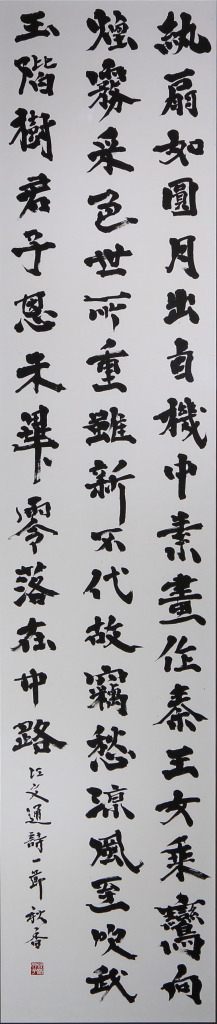 紈扇如圓月出自機中素畫作秦王女乘鸞向
煙霧采色世所重雖新不代故竊愁涼風至吹我
玉階樹君子恩未畢零落在中路
江文通詩一節 秋香